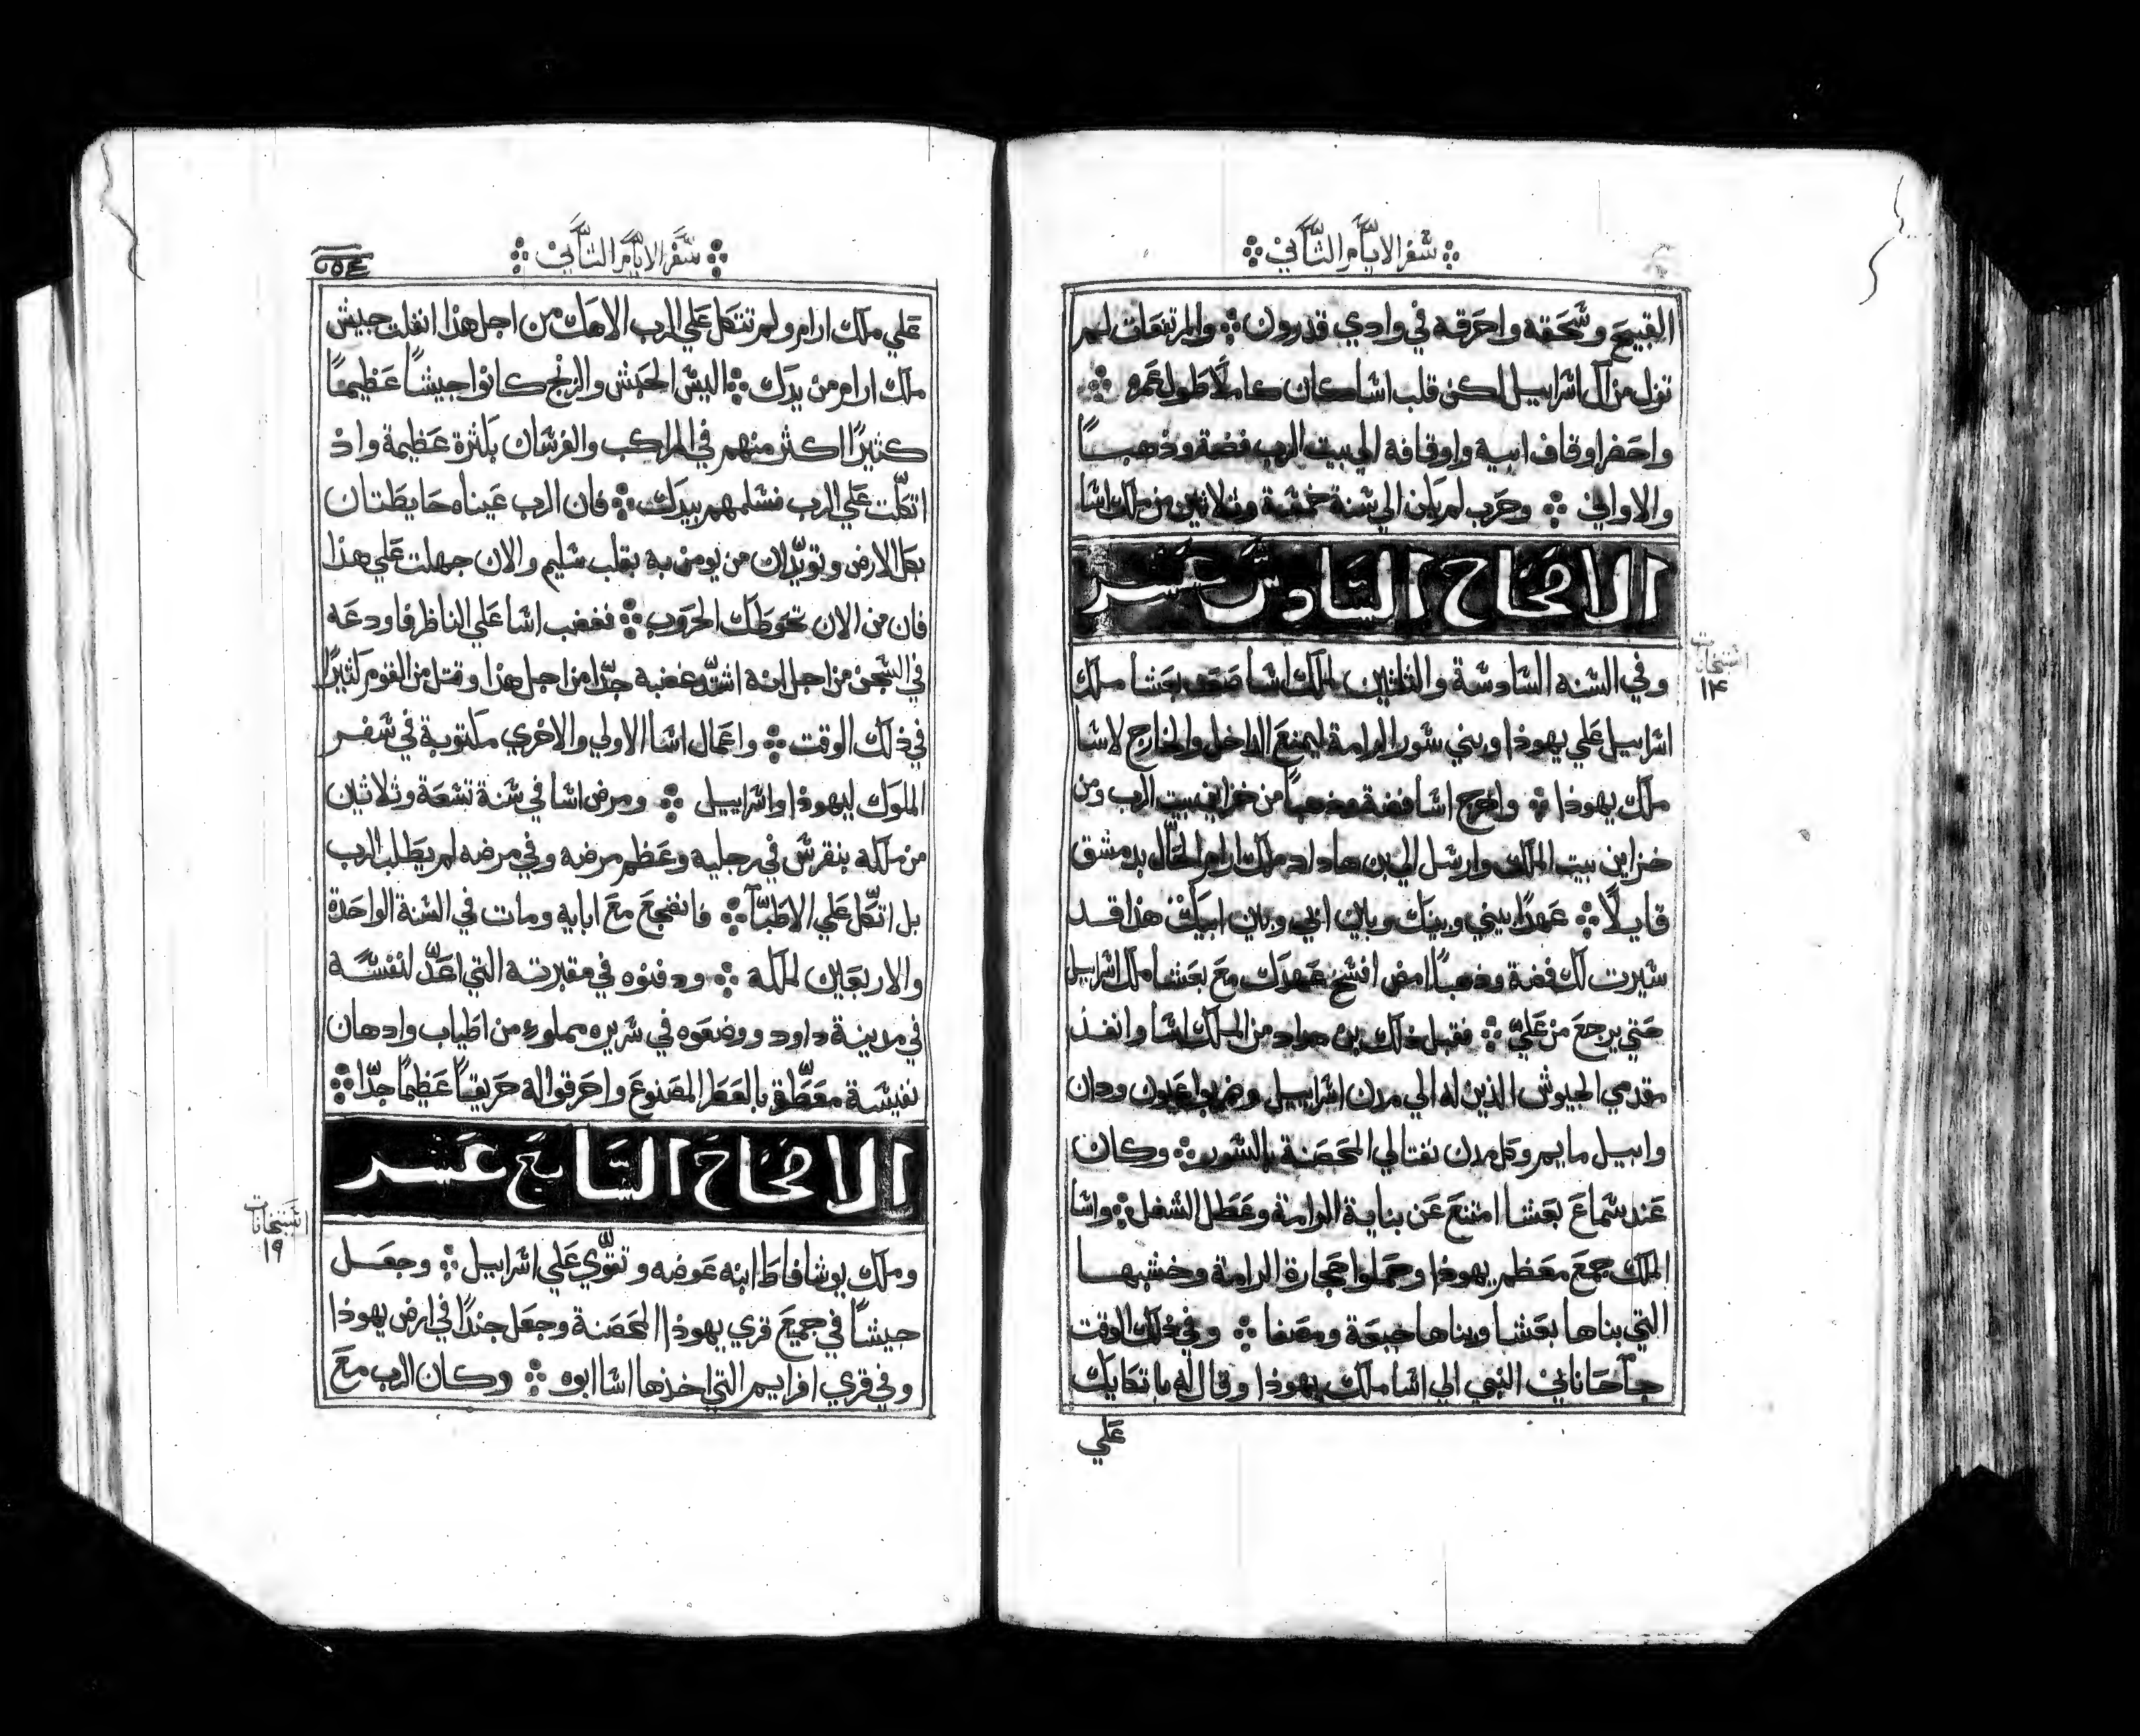 سفر الايام الثاني
القبيح وسحقه واحرقه في وادي قدرون والمرتفعات لم
تزل من آل اسراييل لكن قلب اسا كان كاملًا طول عمره
واحضر اوقاف ابيه واوقافه الي بيت الرب فضة وذهبـًا
والاواني وحرب لم يكن الي سنة خمسة وثلاثين من ملك اسا
الاصحاح السادس عشر
وفي السنه السادسة والثلثين لملك اسا صعد بعشا ملك
استخانات
١٤
اسراييل علي يهوذا وبني سور الرامة ليمنع الداخل والخارج لاسا
ملك يهوذا واخرج اسا فضة وذهبًا من خزاين بيت الرب ومن
خزاين بيت الملك وارسل الي بن هاداد ملك ارام الحّال بدمشق
قايلًا عهدًا بيني وبينك وبين ابي وبين ابيك هذا قد
سيرت لك فضة وذهبًا امض افسخ عهدك مع بعشا ملك اسراييل
حتي يرجع من عليّ فقبل ذلك بن هداد من الملك اسا وانفذ
مقدمي الجيوش الذين له الي مدن اسراييل وضربوا عيون ودان
وابيل مايم وكل مدن نفتالي المحصنة بالسور وكان
عند سماع بعشا امتنع عن بناية الرامة وعطل الشغل واسا
الملك جمع معظم يهوذا وحملوا حجارة الرامة وخشبهـا
التي بناها بعشا وبناها جبعة ومصفا وفي ذلك الوقت
جآ حاناني النبي الي اسا ملك يهوذا وقال له باتكايك
علي
سفر الايام الثاني
علي ملك ارام ولم تتكل علي الرب الاهك من اجل هذا انفلت جيش
ملك ارام من يدك اليس الحبش والزنج كانوا جيشًا عظيمًا
كثيرًا اكثر منهم في المراكب والفرسان بكثرة عظيمة واذ
اتكلّت علي الرب فسلمهم بيدك فان الرب عيناه حايطتان
بكل الارض وتويّدان من يومن به بقلب سليم والان جهلت علي هذا
فان من الان تحوطك الحروب فغضب اسا علي الناظر فاودعه
في السجن من اجل انه اشتدّ غضبه جدّا من اجل هذا وقتل من القوم كثيرًا
في ذلك الوقت واعمال اسا الاولي والاخري مكتوبة في سفر
الملوك ليهوذا واسراييل ومرض اسا في سنة تسعة وثلاثين
من ملكه بنقرس في رجليه وعظم مرضه وفي مرضه لم يطلب الرب
بل اتكّل علي الاطبّآ فانضجع مع ابايه ومات في السنة الواحدة
والاربعين لملكه ودفنوه في مقبرته التي اعدّ لنفسه
في مدينة داود ووضعوه في سريره مملوء من اطياب وادهان
نفيسة معطّرة بالعطر المصنوع واحرقوا له حريقًا عظيمًا جدًّا
الاصحاح السابع عشر
استخانات
١٩
وملك يوشافاط ابنه عوضه وتقوّي علي اسراييل وجعـل
جيشًا في جميع قري يهوذا المحصنة وجعل جندًا في ارض يهوذا
وفي قري افرايم التي اخذها اسا ابوه وكان الرب مع